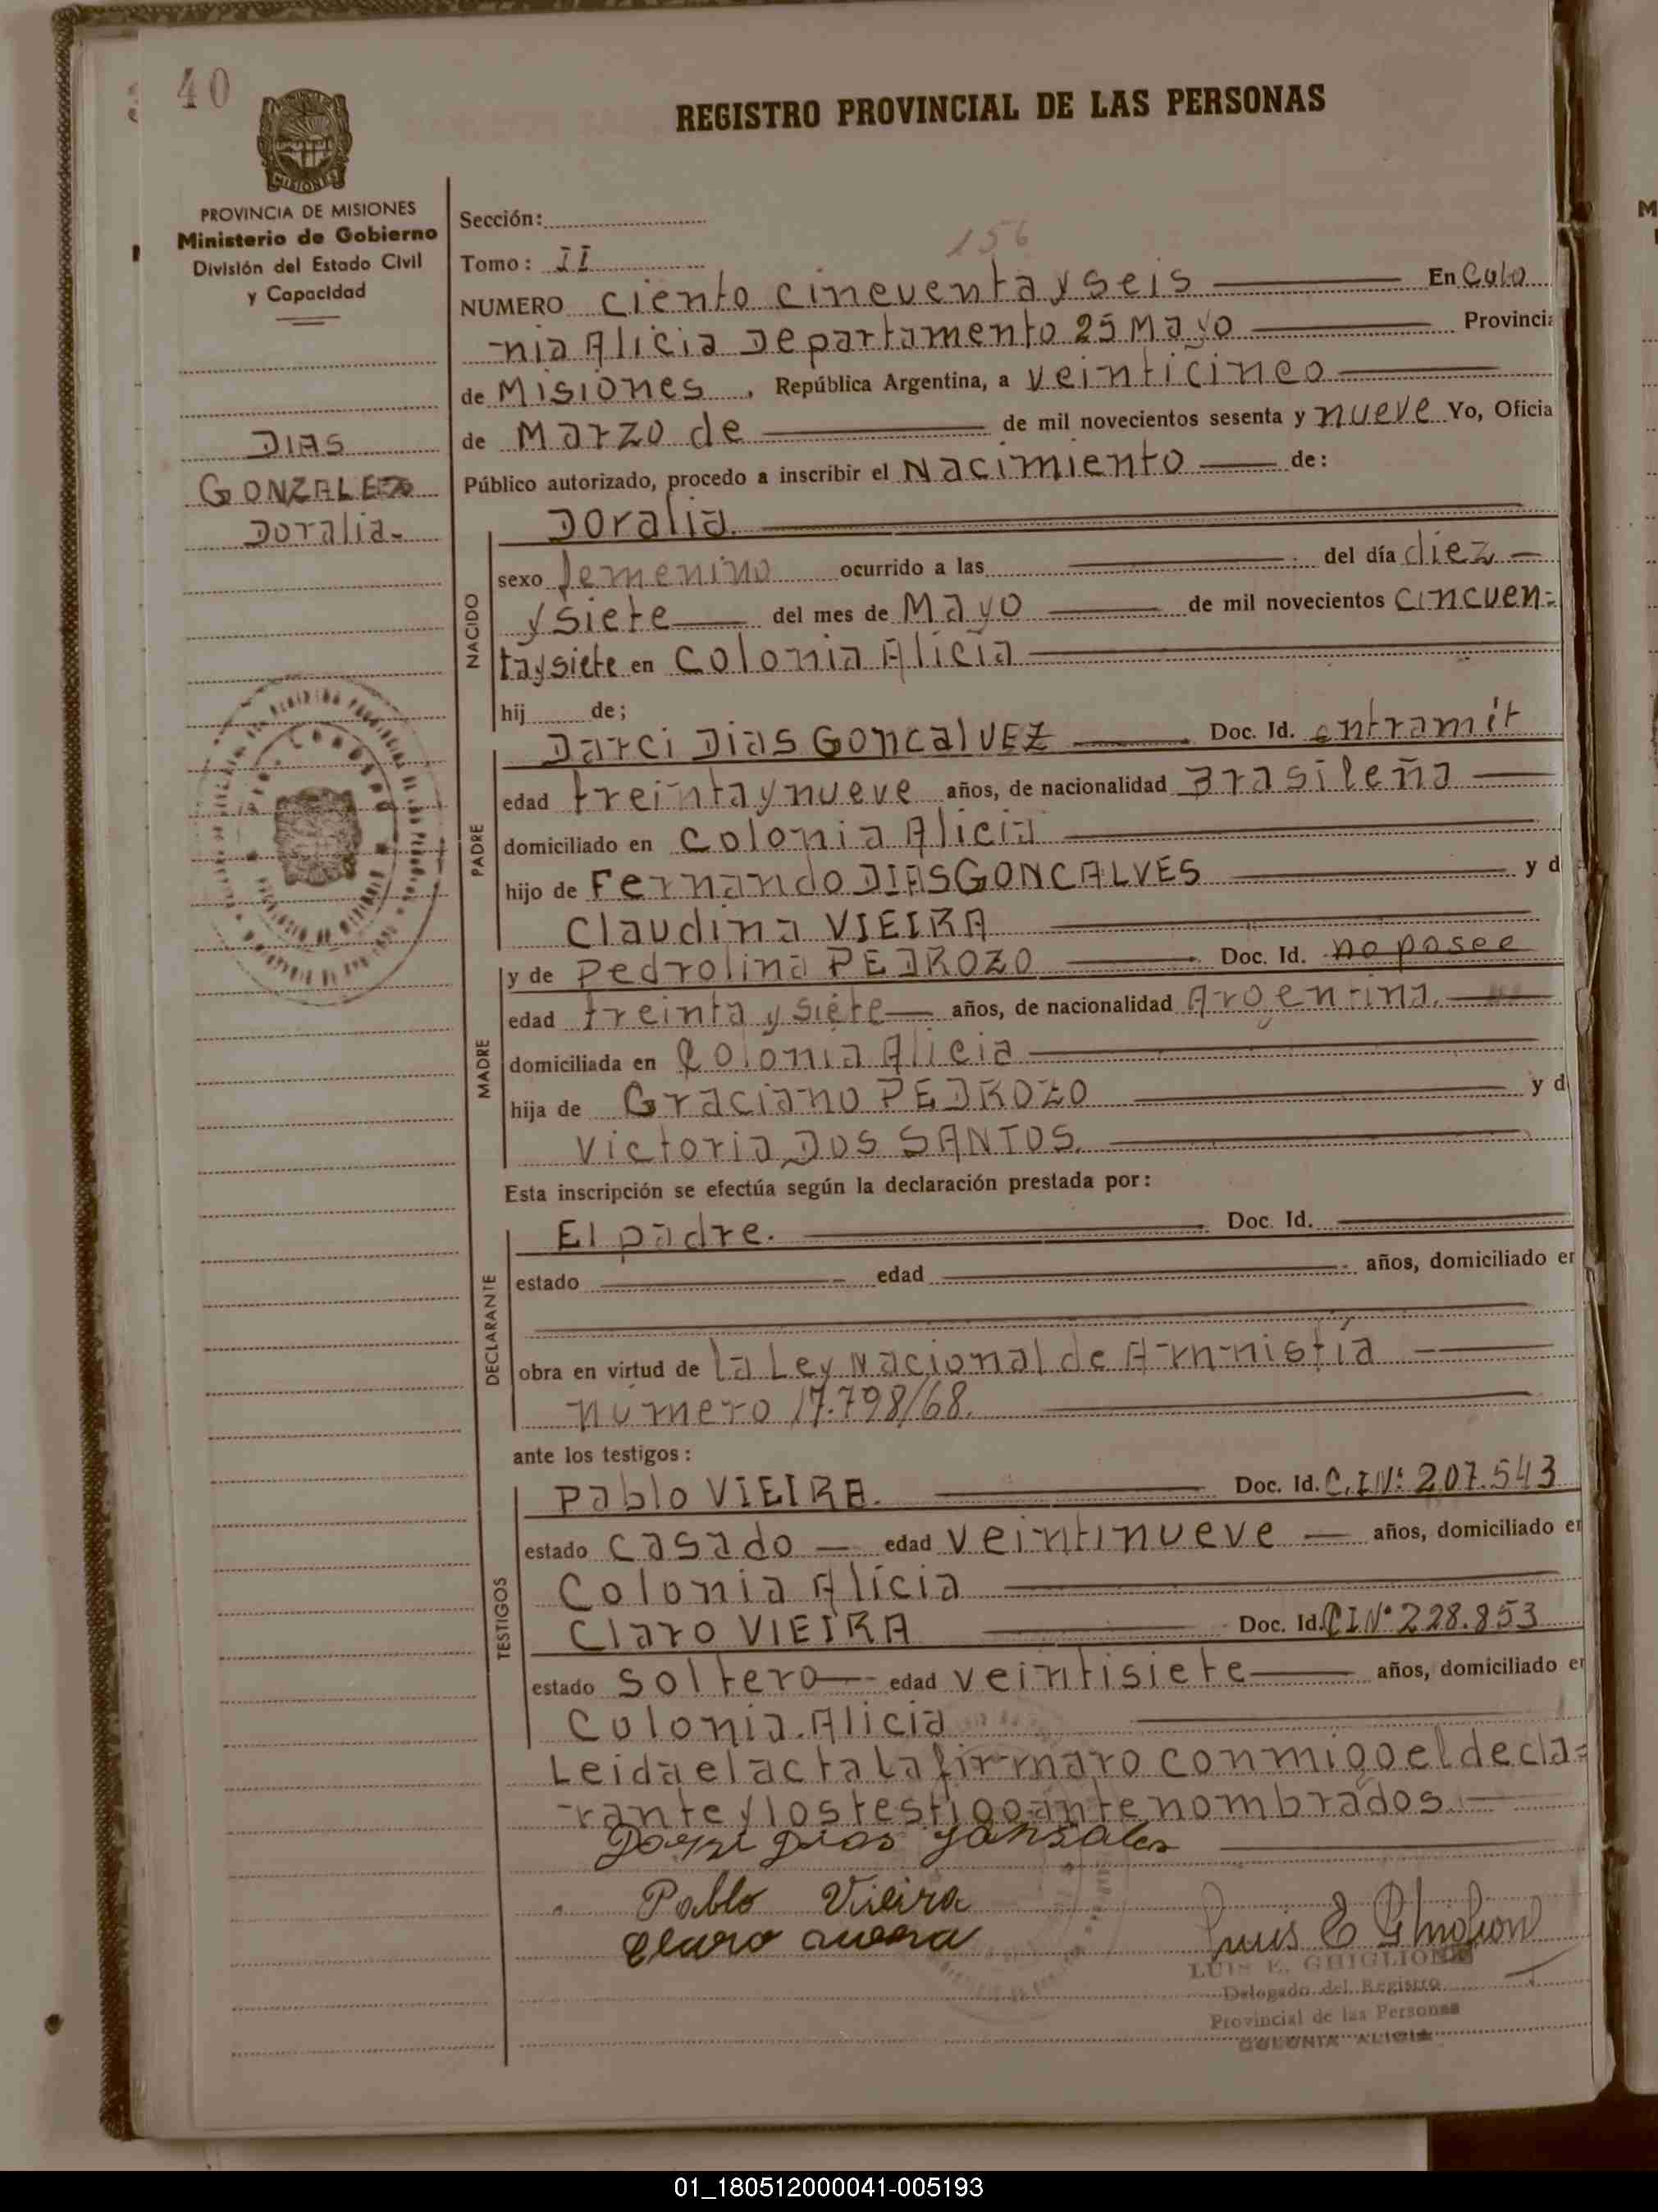 40
REGISTRO PROVINCIAL DE LAS PERSONAS
MISIONES
PROVINCIA DE MISIONES
Ministerio de Gobierno
División del Estado Civil
y Capacidad
DIAS
GONZALEZ
Doralia-
Sección:
Tomo: II
156
NUMERO ciento cincuenta y seis En Colo
-nia Alicia Departamento 25 Mayo Provincia
de Misiones, República Argentina, a veinticinco
de Marzo de de mil novecientos sesenta y nueve Yo, Oficia
Público autorizado, procedo a inscribir el Nacimiento de:
Doralia.
NACIDO
sexo femenino ocurrido a las del día diez
y siete del mes de Mayo de mil novecientos cincuen=
taysiete en Colonia Alicia
hij de;
PADRE
Darci Dias Goncalvez Doc. Id. entramit
edad treinta y nueve años, de nacionalidad Brasileña
domiciliado en Colonia Alicia
hijo de Fernando DIAS GONCALVES y d
Claudina VIEIRA
MADRE
y de Pedrolina PEDROZO Doc. Id. no posee
edad treinta y siete años, de nacionalidad Argentina.
domiciliada en Colonia Alicia
hija de Graciano PEDROZO y d
Victoria DOS SANTOS.
Esta inscripción se efectúa según la declaración prestada por:
DECLARANTE
El padre. Doc. Id.
estado edad años, domiciliado en
obra en virtud de la Ley Nacional de Amnistía
número 17.798/68.
ante los testigos:
TESTIGOS
Pablo VIEIRA. Doc. Id. C.I Nº 207.543
estado casado edad veintinueve años, domiciliado en
Colonia Alicia
Claro VIEIRA Doc. Id. CI Nº 228.853
estado soltero edad veintisiete años, domiciliado en
Colonia. Alicia
Leida el acta la firmaro conmigo el decla=
-rante y los testigo antenombrados.
Pablo Vieira
LUIS E. GHIGLIONE
Delegado del Registro
Provincial de las Personas
COLONIA ALICIA
01_180512000041-005193